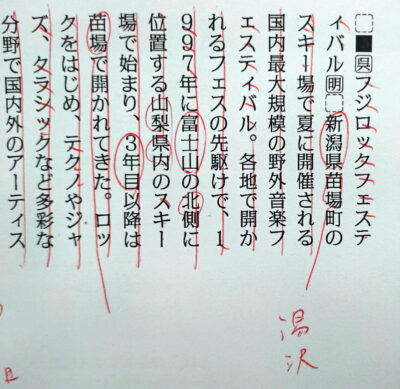 □■フジロックフェステ
ィバル明□新潟県苗場町の
スキー場で夏に開催される
国内最大規模の野外音楽フ
ェスティバル。各地で開か
れるフェスの先駆けで、1
997年に富士山の北側に
位置する山梨県内のスキー
場で始まり、3年目以降は
苗場で開かれてきた。ロッ
クをはじめ、テクノやジャ
ズ、クラシックなど多彩な
分野で国内外のアーティス
湯沢